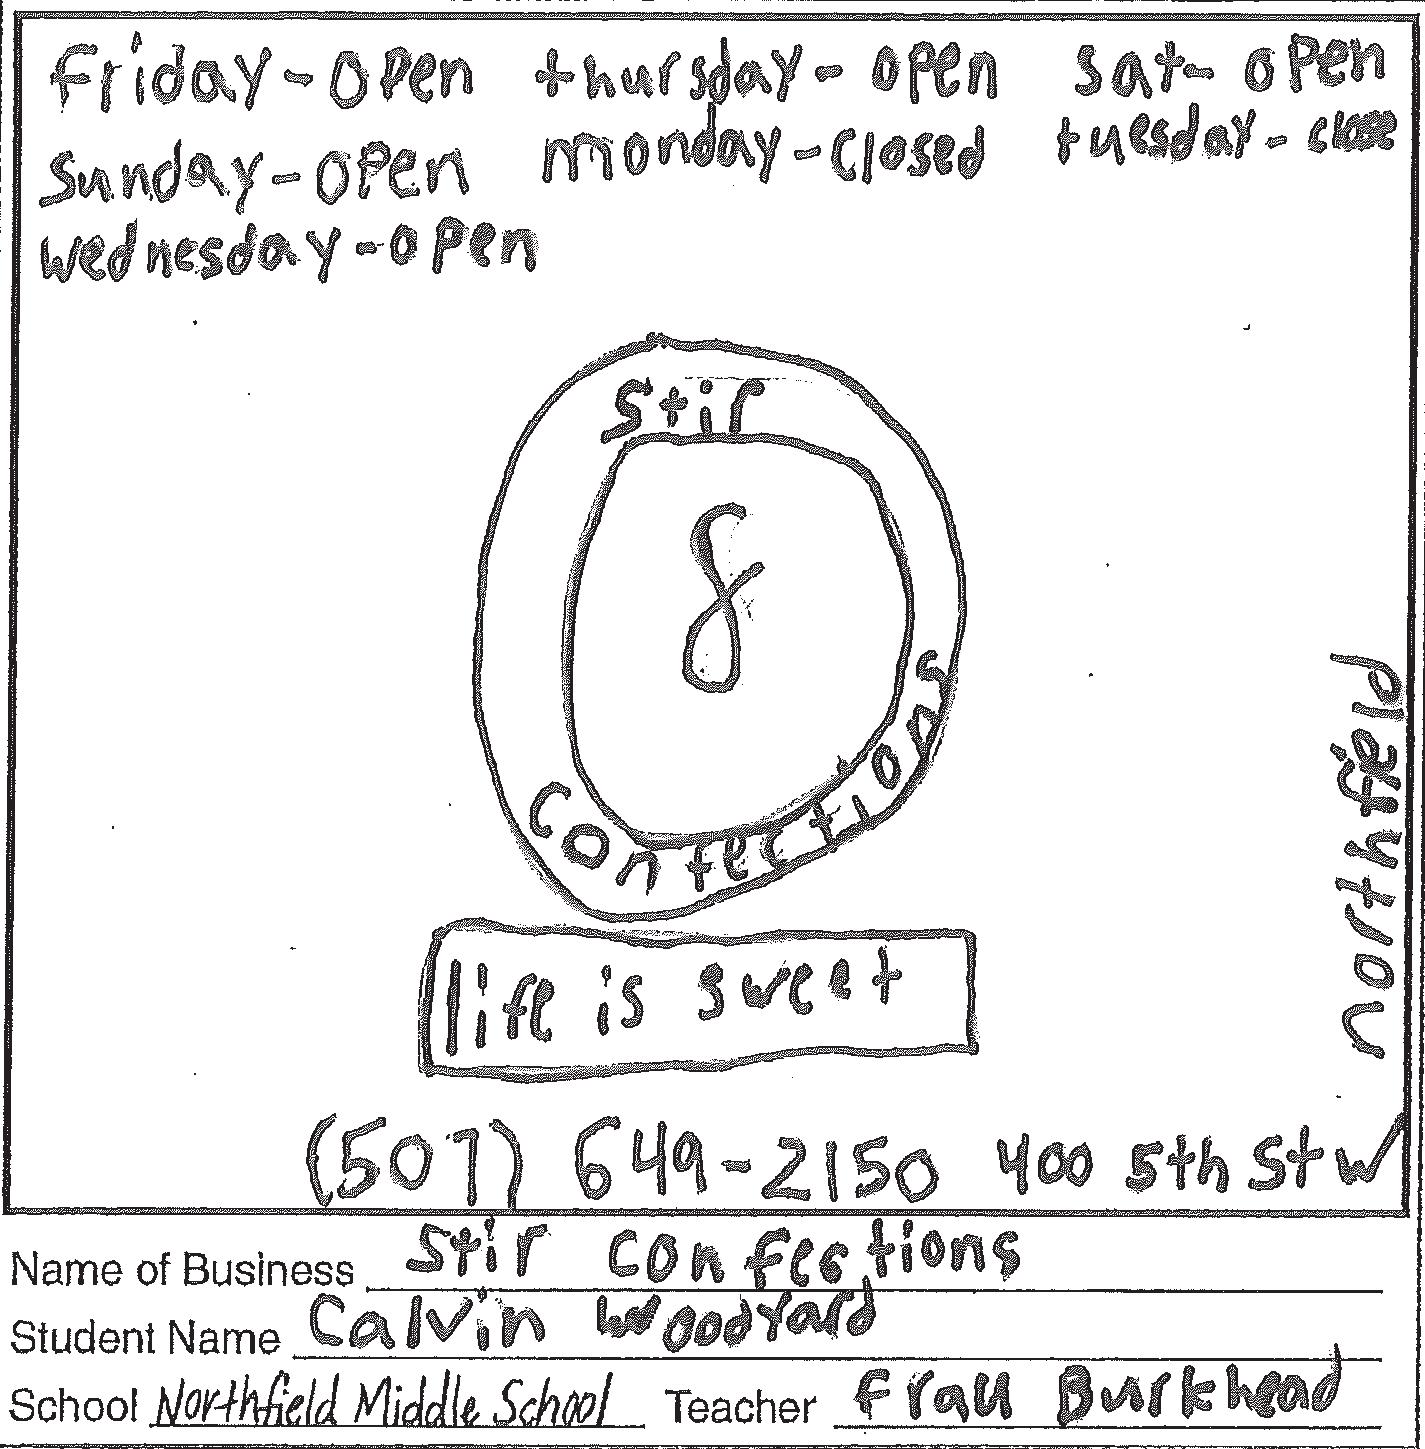 Friday-open thursday- open sat- open
sunday-open monday-closed tuesday-close
wednesday-open
stir
8
confections
life is sweet
northfield
(507) 649-2150 400 5th st W
Name of Business stir confections
Student Name Calvin Woodyard
School Northfield Middle School Teacher Frau Burkhead